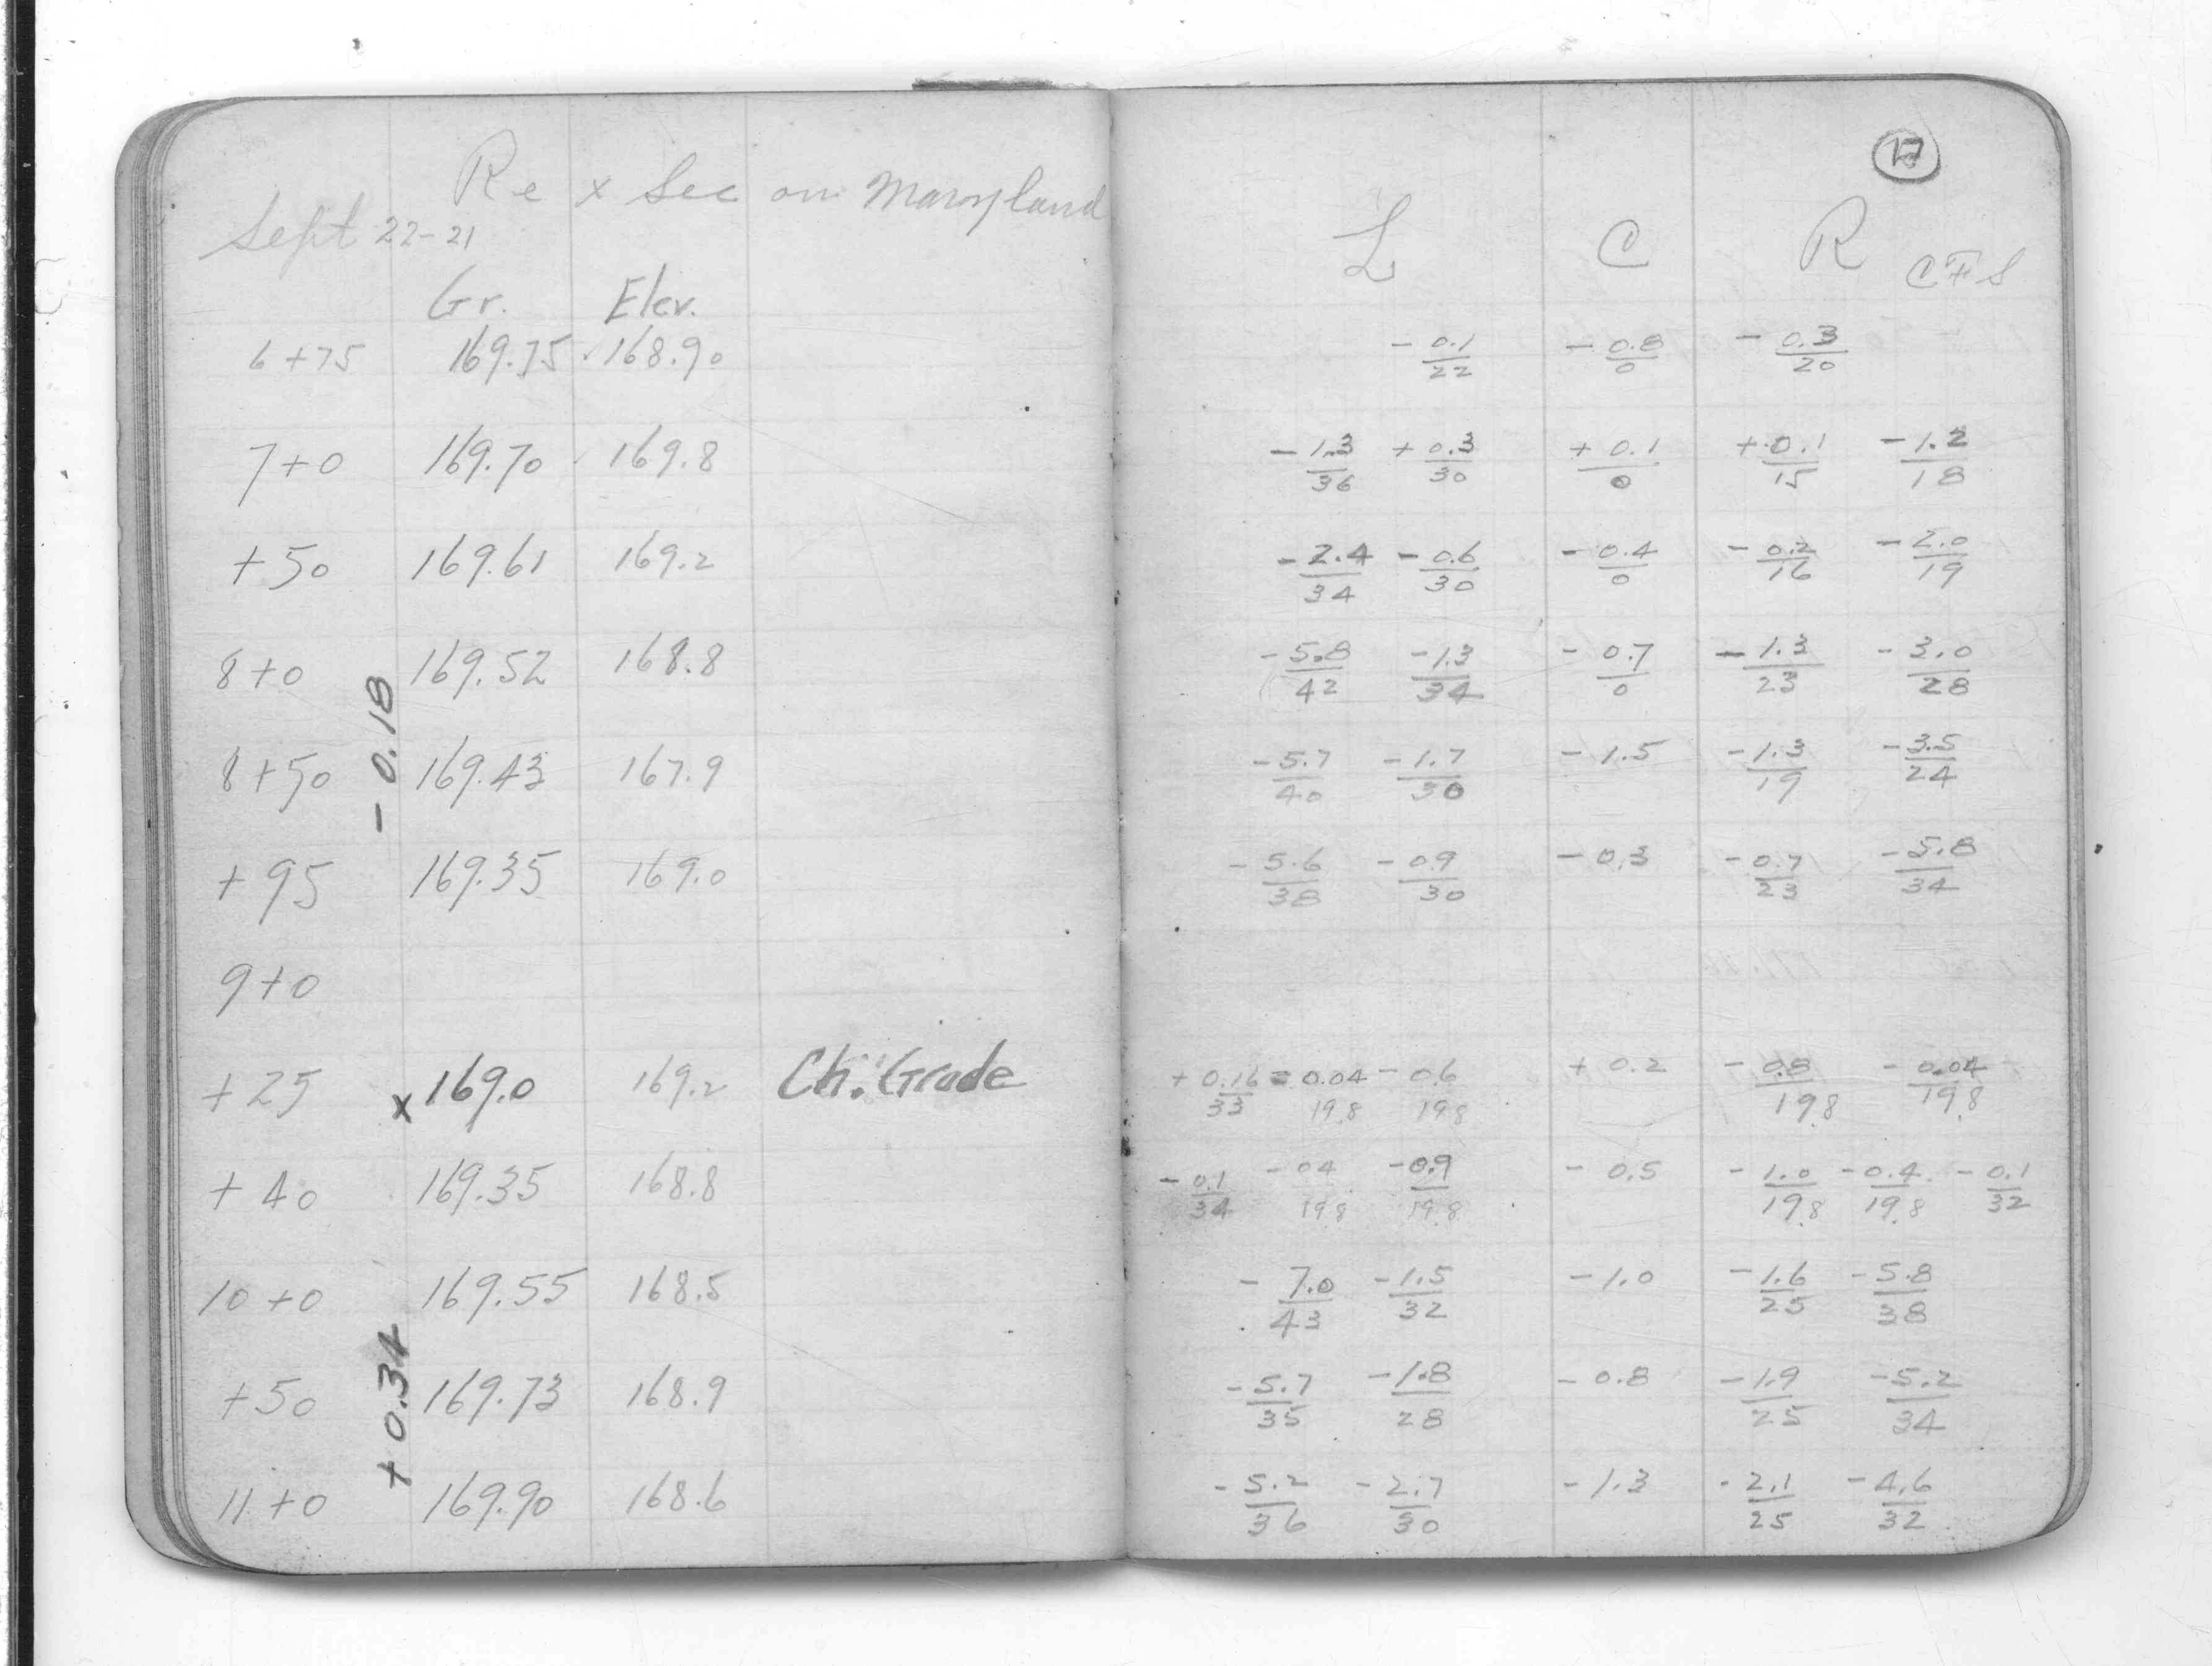 Re x Sec on Maryland
Sept 22-21
Gr. Elev.
6+75 169.75 168.90
7+0 169.70 169.8
+50 169.61 169.2
8+0 169.52 168.8
- 0.18
8+50 169.43 167.9
+95 169.35 169.0
9+0
+25 x 169.0 169.2 Ch. Grade
+40 169.35 168.8
10+0 169.55 168.5
+ 0.34
+50 169.73 168.9
11+0 169.90 168.6
17
L C R CFS
-0.1/22 -0.8/0 -0.3/20
-1.3/36 +0.3/30 +0.1/0 +0.1/15 -1.2/18
-2.4/34 -0.6/30 -0.4/0 -0.2/16 -2.0/19
-5.8/42 -1.3/34 -0.7/0 -1.3/23 -3.0/28
-5.7/40 -1.7/30 -1.5 -1.3/19 -3.5/24
-5.6/38 -0.9/30 -0.3 -0.7/23 -5.8/34
+0.16/33 -0.04/19.8 -0.6/19.8 +0.2 -0.8/19.8 -0.04/19.8
-0.1/34 -04/19.8 -0.9/19.8 -0.5 -1.0/19.8 -0.4/19.8 -0.1/32
-7.0/43 -1.5/32 -1.0 -1.6/25 -5.8/38
-5.7/35 -1.8/28 -0.8 -1.9/25 -5.2/34
-5.2/36 -2.7/30 -1.3 -2.1/25 -4.6/32